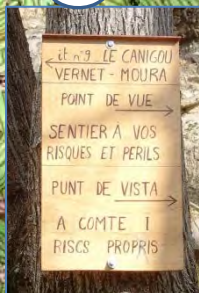 it n°9 LE CANIGOU
VERNET - MOURA
POINT DE VUE
SENTIER A VOS
RISQUES ET PERILS
PUNT DE VISTA
A COMTE I
RISCS PROPRIS